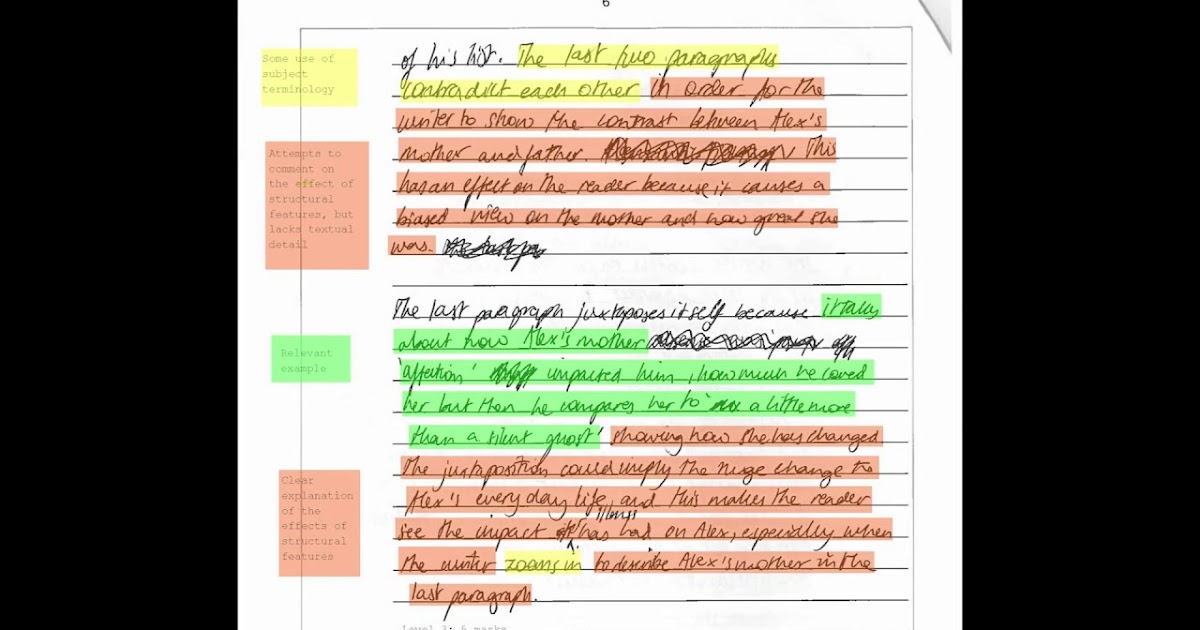 6
of his list. The last two paragraphs
contradict each other in order for the
writer to show the contrast between Alex's
mother and father. This
has an effect on the reader because it causes a
biased view on the mother and how great she
was.
The last paragraph juxtposes itself because it talks
about how Alex's mother
'affection' impacted him, how much he loved
her but then he compares her to a little more
than a silent ghost' showing how she has changed
The juxtaposition could imply the huge change to
Alex's every day life, and this makes the reader
see the impact illness has had on Alex, especially when
the writer zooms in to describe Alex's mother in the
last paragraph.
Some use of
subject
terminology
Attempts to
comment on
the effect of
structural
features, but
lacks textual
detail
Relevant
example
Clear
explanation
of the
effects of
structural
features
Level 3: 5 marks